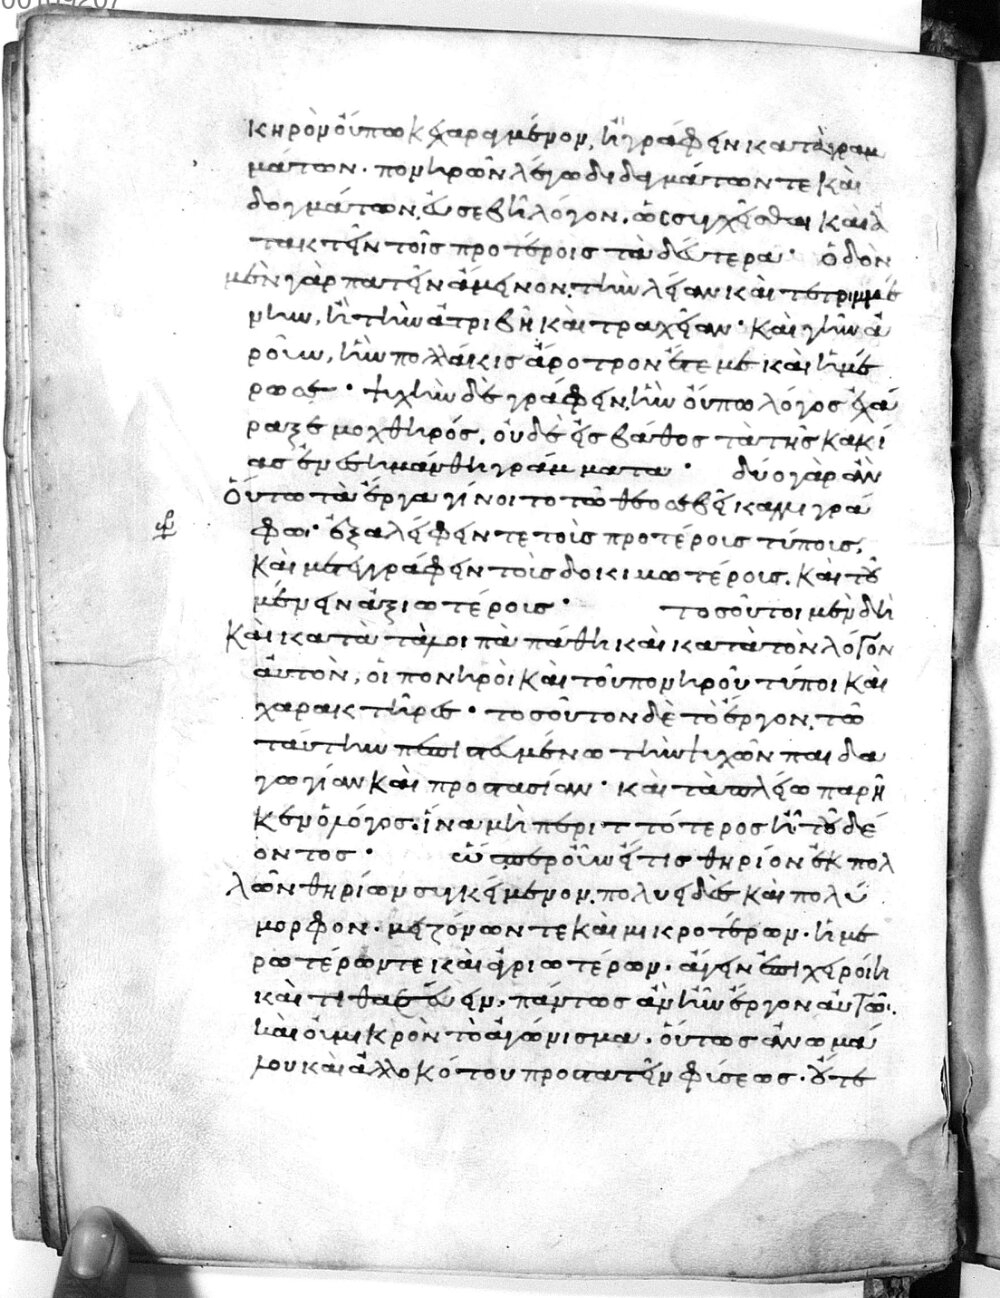 κηρὸν οὔπω κεχαραγμένον, ἢ γράφειν κατὰ γραμ
μάτων· πονηρῶν λέγω διδαγμάτων τε καὶ
δογμάτων, εὐσεβῆ λόγον, ὡς συγχεῖσθαι καὶ ἀ
τακτεῖν τοῖς προτέροις τὰ δεύτερα· ὁδὸν
μὲν γὰρ πατεῖν ἄμεινον, τὴν λείαν καὶ τετριμμέ
νην, ἢ τὴν ἀτριβῆ καὶ τραχεῖαν· καὶ γῆν ἀ
ροῦν, ἣν πολλάκις ἄροτρον ἔτεμε καὶ ἡμέ
ρωσε· ψυχὴν δὲ γράφειν, ἣν οὔπω λόγος ἐχά
ραξε μοχθηρός, οὐδὲ εἰς βάθος τὰ τῆς κακί
ας ἐνεσημάνθη γράμματα· δύο γὰρ ἂν
οὕτω τὰ ἔργα γίνοιτο τῷ θεοσεβεῖ καλλιγρά
φῳ· ἐξαλείφειν τε τοὺς προτέρους τύπους,
καὶ μετεγγράφειν τοὺς δοκιμωτέρους, καὶ τοῦ
μένειν ἀξιωτέρους· τοσοῦτοι μὲν δὴ
καὶ κατὰ τἄλλοιπὰ πάθη καὶ κατὰ τὸν λόγον
αὐτὸν, οἱ πονηροὶ καὶ τοῦ πονηροῦ τύποι καὶ
χαρακτῆρες· τοσοῦτον δὲ τὸ ἔργον, τῷ
ταύτην πεπιστευμένῳ τὴν ψυχῶν παιδα
γωγίαν καὶ προστασίαν· καὶ τὰ πλείω παρῆ
κεν ὁ λόγος, ἵνα μὴ περιττότερος ᾖ τοῦ δέ
οντος· ὥσπερ οὖν εἴ τις θηρίον ἐκ πολ
λῶν θηρίων συγκείμενον, πολυειδὲς καὶ πολύ
μορφον, μειζόνων τε καὶ μικροτέρων, ἡμε
ρωτέρων τε καὶ ἀγριωτέρων, ἄγειν ἐπιχειροίη
καὶ τιθασεύειν, πάντως ἂν ἦν ἔργον αὐτῷ,
καὶ οὐ μικρὸν τὸ ἀγώνισμα, οὕτως ἀνωμά
λου καὶ ἀλλοκότου προστατεῖν φύσεως· οὔτε